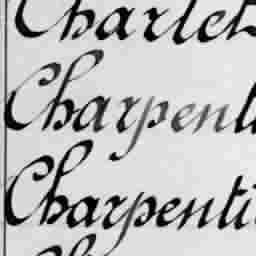 Charlet
Charpenti
Charpenti